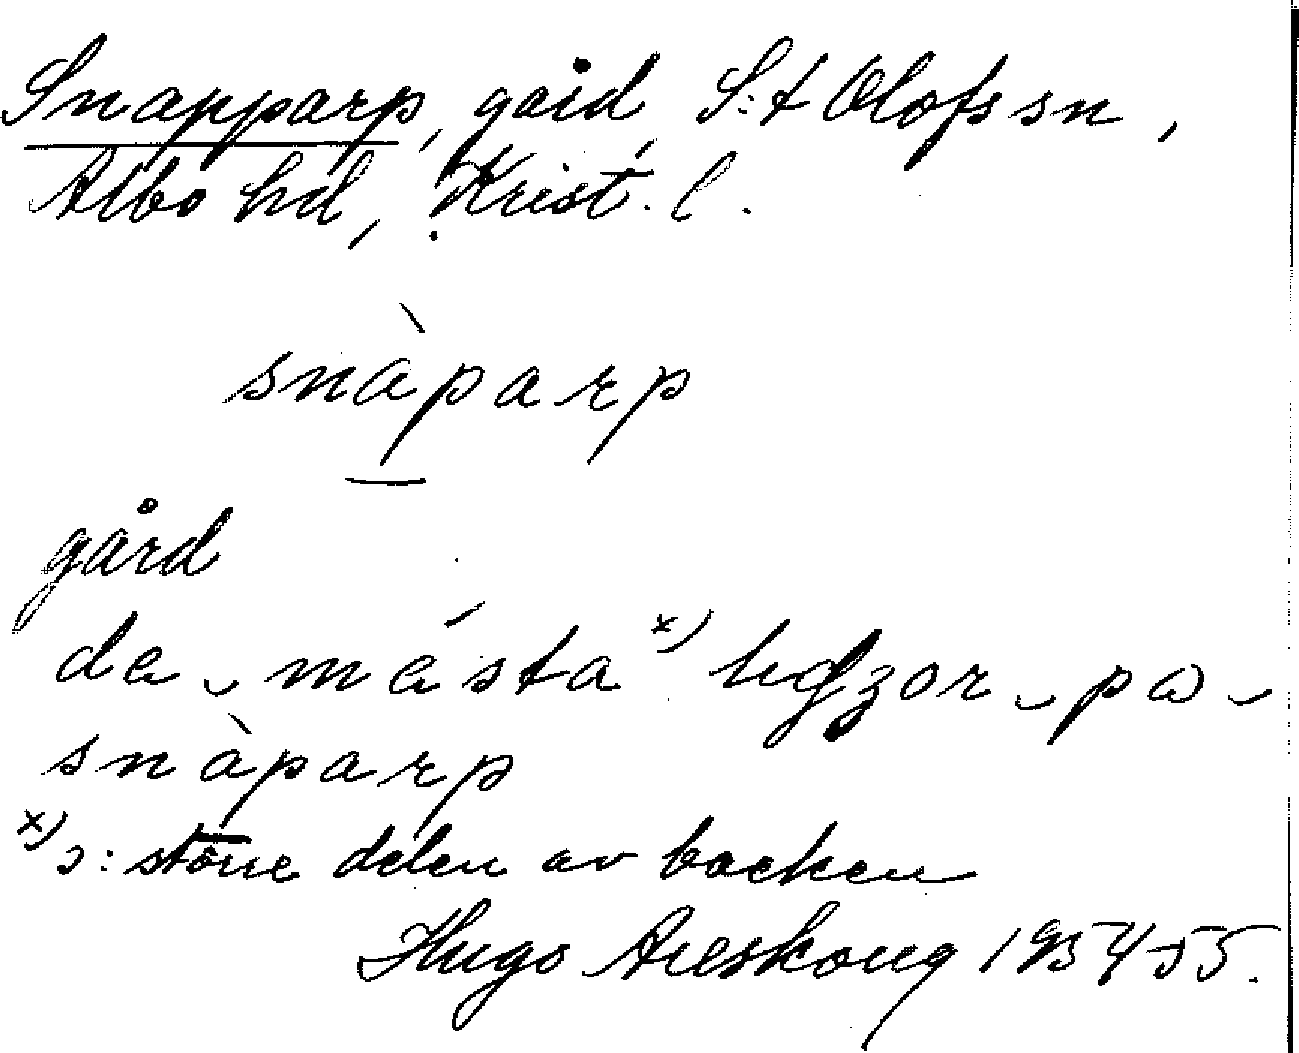 Snapparp, gård, S:t Olofs sn,
Albo hd, Krist. l.
snàparp
gård
de ‿ mésta ˣ⁾ ‿ pa ‿
snàparp
ˣ⁾ ɔ: större delen av backen
Hugo Areskoug 1954-55.